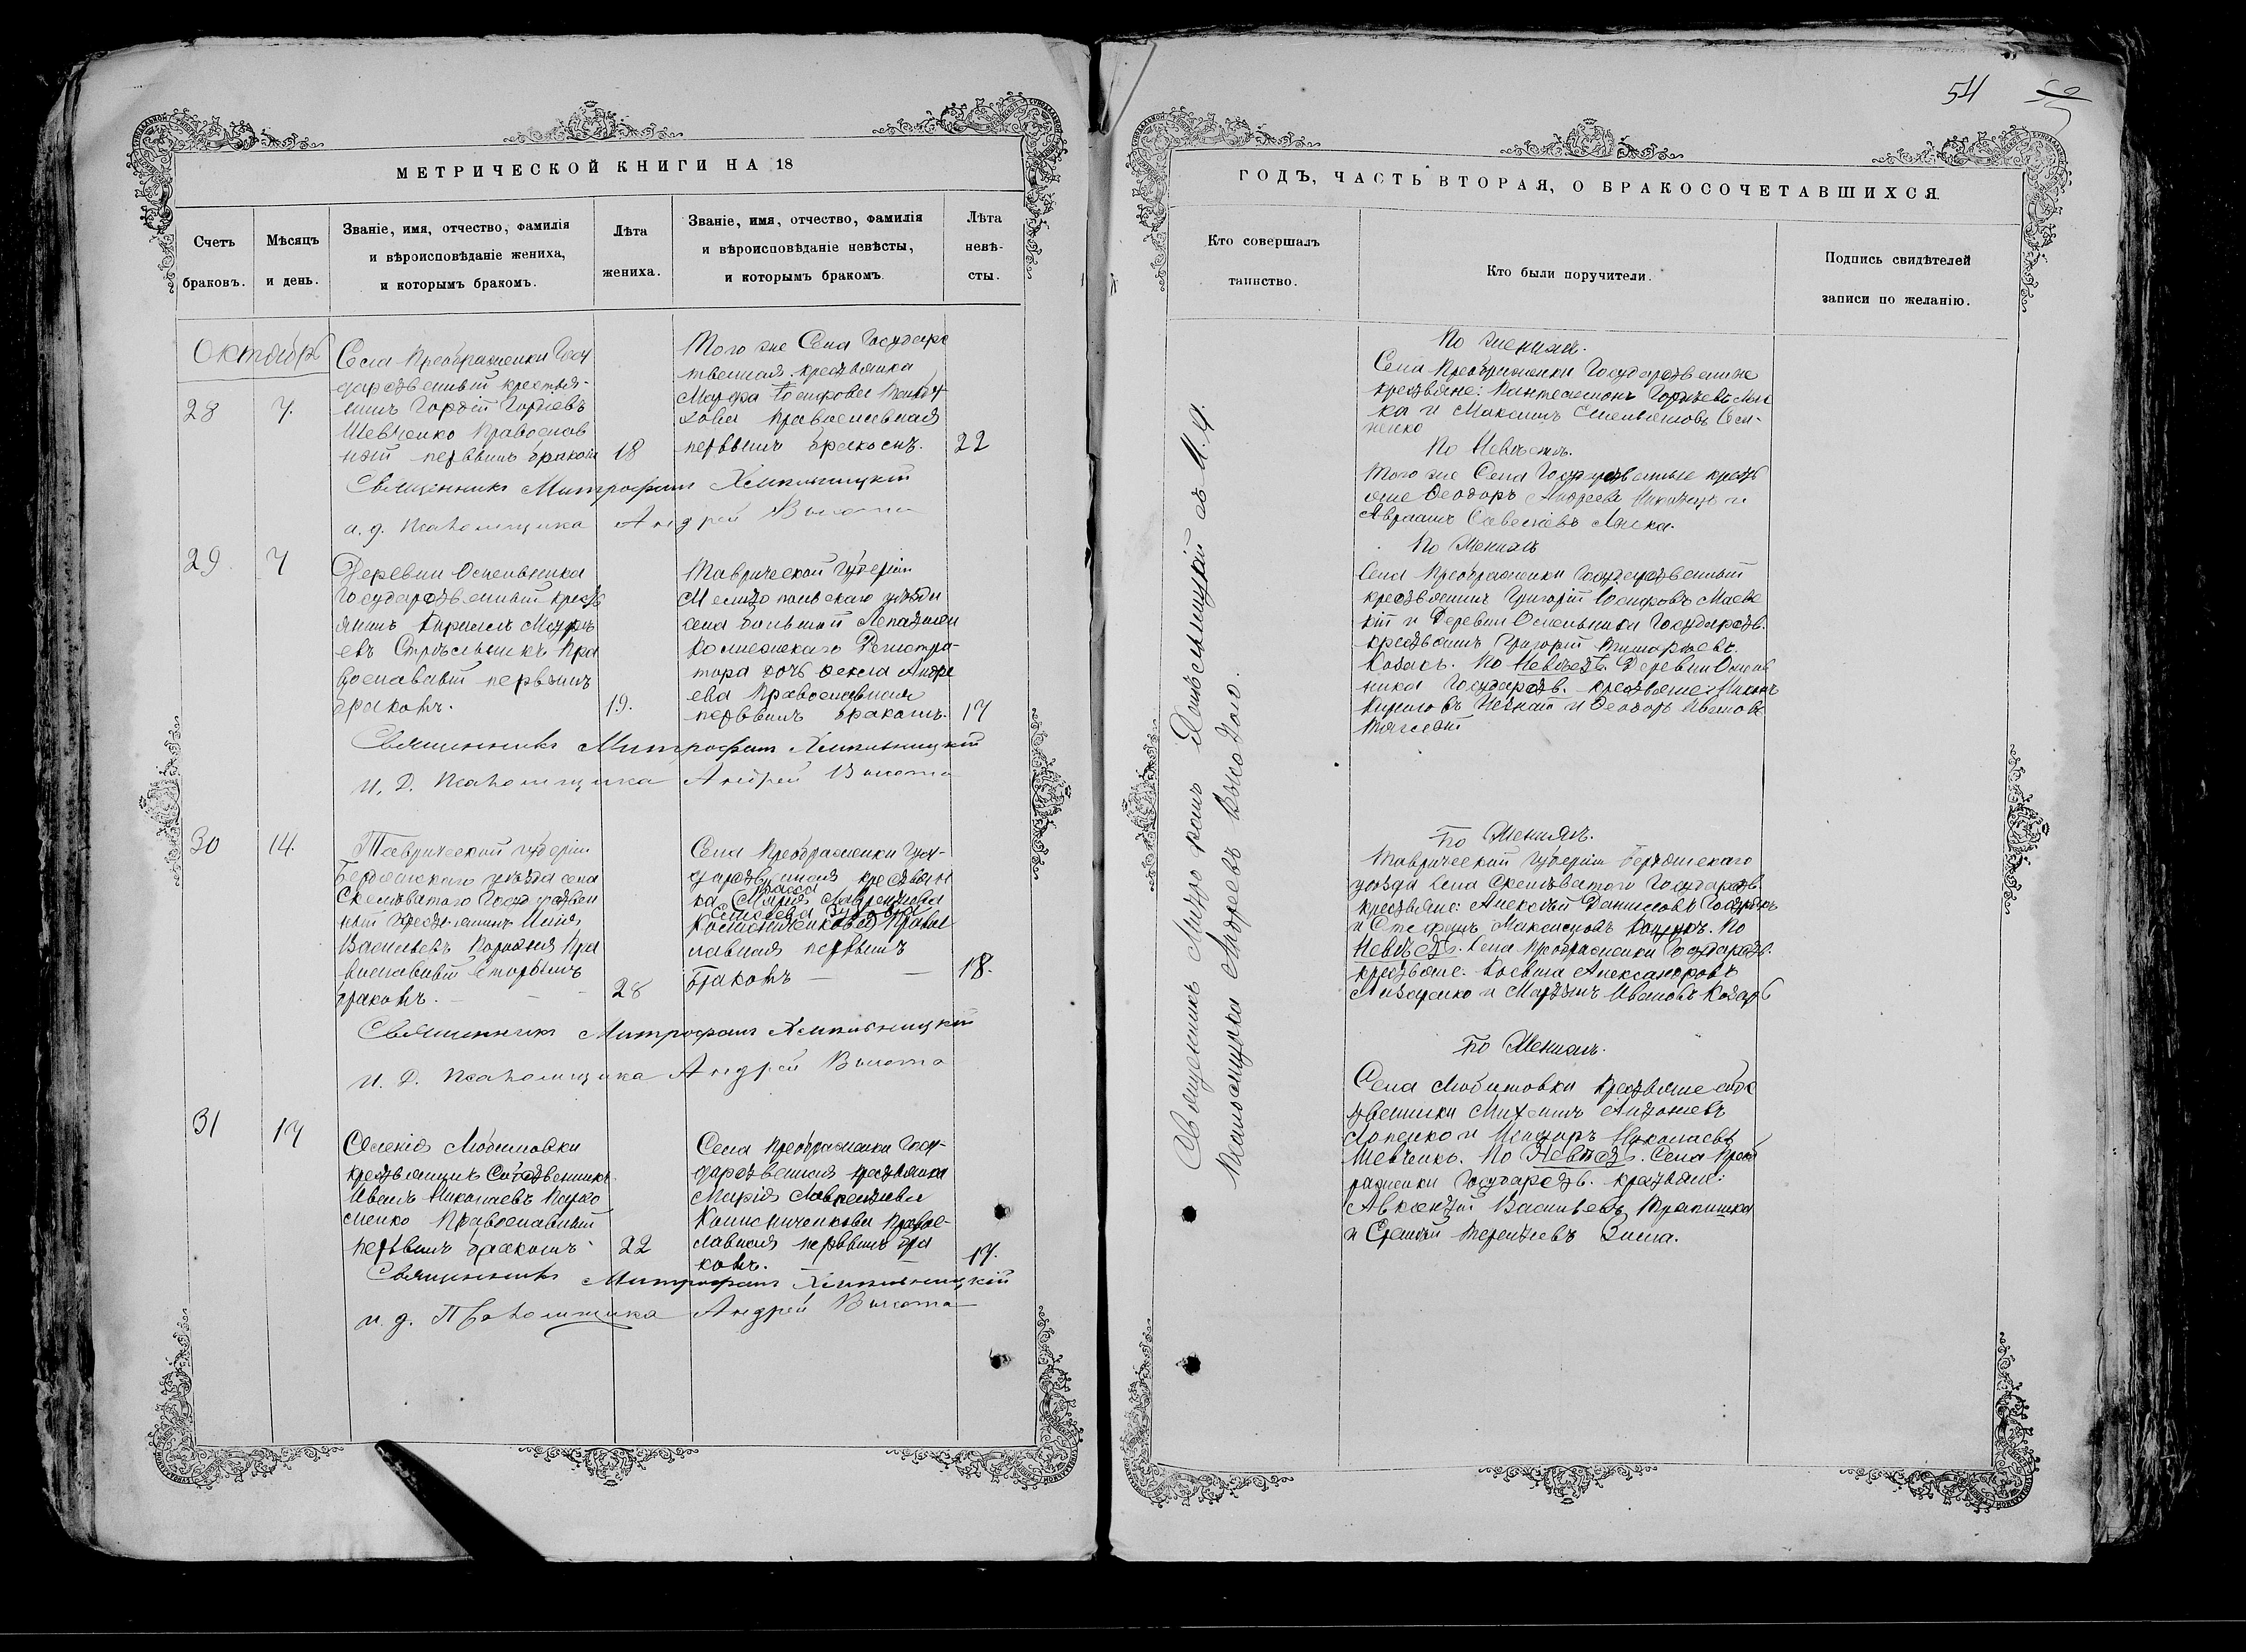 МЕТРИЧЕСКОЙ КНИГИ НА 18
Счетъ браковъ.
Мѣсяцъ и день.
Званіе, имя, отчество, фамилія
и вѣроисповѣданіе жениха,
и которымъ бракомъ.
Лѣта
жениха.
Званіе, имя, отчество, фамилія
и вѣроисповѣданіе невѣсты,
и которымъ бракомъ
Лѣта
невѣ-
сты.
Октябрь
28
7.
Села Преображенки Госу
дарственный крестья-
нинъ Гордій Гордіевъ
Шевченко Православ
ный первымъ бракомъ
18
Того же Села Государс
твенная крестьянка
Марфа Іосифова
Православная
первымъ бракомъ.
22
Священникъ Митрофанъ Хмильницкій
и. д. Псаломщика Андрей Высота
29
7
Деревни Осиповника
Государственный кресть
янинъ Кириллъ
Стрѣльникъ Пра
вославный первымъ
бракомъ.
19.
Таврической Губерніи
Мелитопольскаго уѣзда
села Большой Лепатихи
Коллежскаго Регистра-
тора дочь Андре
ева Православная
первымъ бракомъ.
17
Священникъ Митрофанъ Хмильницкій
И. Д. Псаломщика Андрей Высота
30
14.
Таврической губерніи
Бердянскаго уѣзда села
Скелеватого Государствен
ный крестьянинъ Илія
Васильевъ Пра
вославный вторымъ
бракомъ.
28
Села Преображенки Госу-
дарственная крестьян
ка Марія Лаврентіева
Правос
лавная первымъ
бракомъ
18.
Священникъ Митрофанъ Хмильницкій
И. Д. Псаломщика Андрей Высота
31
17
Селенія Любимовки
крестьянинъ Собственникъ
Иванъ Николаевъ
Православный
первымъ бракомъ
22
Села Преображенки Госу-
дарственная крестьянка
Марія Лаврентіева
Колисниченкова Правос-
лавная первымъ бра
комъ.
17.
Священникъ Митрофанъ Хмильницкій
и. д. Псаломщика Андрей Высота
54
ГОДЪ, ЧАСТЬ ВТОРАЯ, О БРАКОСОЧЕТАВШИХСЯ.
Кто совершалъ
таинство.
Кто были поручители.
Подпись свидѣтелей
записи по желанію.
Священникъ Митрофанъ Хмѣльницкій съ И. д.
Псаломщика Андреемъ Высотою.
По женихѣ.
Села Преображенки Государственные
крестьяне: Пантелеимонъ Гордѣевъ
и Максимъ
По Невѣстѣ.
Того же Села Государственные кресть
яне Ѳеодоръ Андреевъ и
Авраамъ Савелиевъ Ляска.
По Женихѣ
Села Преображенки Государственный
крестьянинъ Григорій Іосифовъ Маевс
кій и Деревни Государств.
крестьянинъ Григорій Тимофѣевъ
Козакъ. По Невѣстѣ Деревни
Государств. крестьяне: Никонъ
Кириловъ и Ѳеодоръ Ивановъ
По Женихѣ.
Таврической Губерніи Бердянскаго
уѣзда Села Скелеватого Государств.
крестьяне: Алексѣй Даниловъ
и Стефанъ Максимовъ По
Невѣстѣ. Села Преображенки Государств.
крестьяне: Косьма Александровъ
и Мартынъ Ивановъ Козарь
По Женихѣ.
Села Любимовки Крестьяне собс
твенники Михаилъ Антоніевъ
и Николаевъ
Шевченко. По Невѣстѣ. Села Преоб
раженки Государств. крестьяне:
Авксентій Васильевъ
и Терентіевъ Зима.